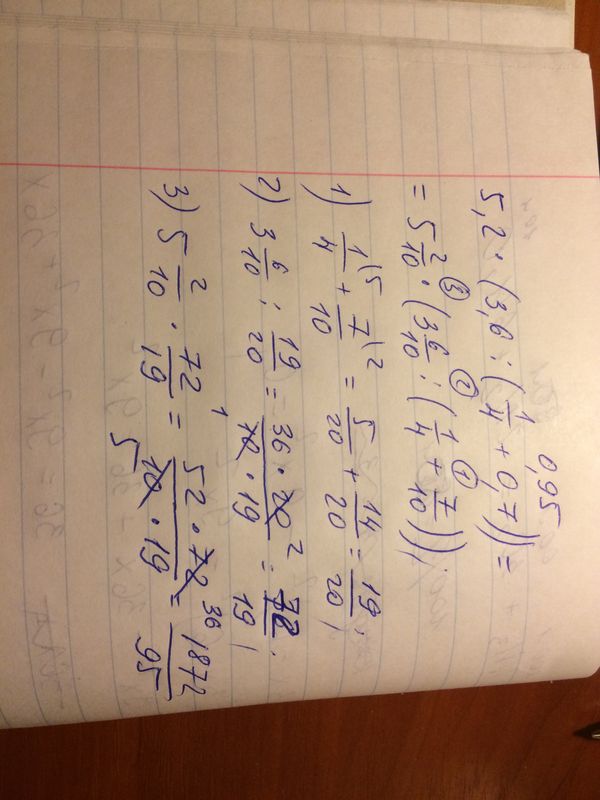 0,95
5,2 · (3,6 : (1/4 + 0,7)) =
= 5 2/10 ·③ (3 6/10 :② (1/4 +① 7/10));
1) 1/4 \5 + 7/10 \2 = 5/20 + 14/20 = 19/20;
2) 3 6/10 : 19/20 = 36 · 20 2 / 10 1 · 19 = 72/19;
3) 5 2/10 · 72/19 = 52 · 72 36 / 10 5 · 19 = 1872/95